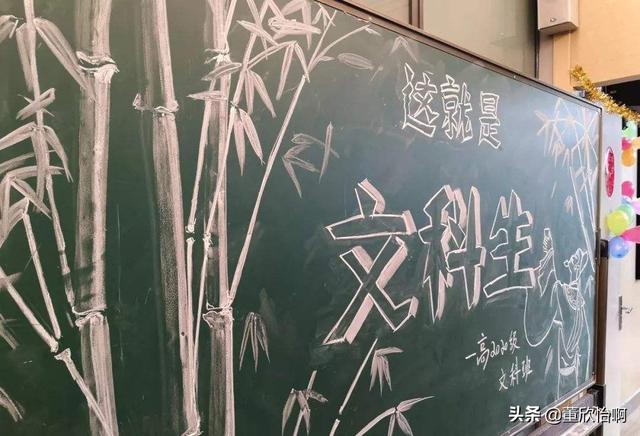 这就是
文科生
一高2020级
文科班
头条 @董欣怡啊